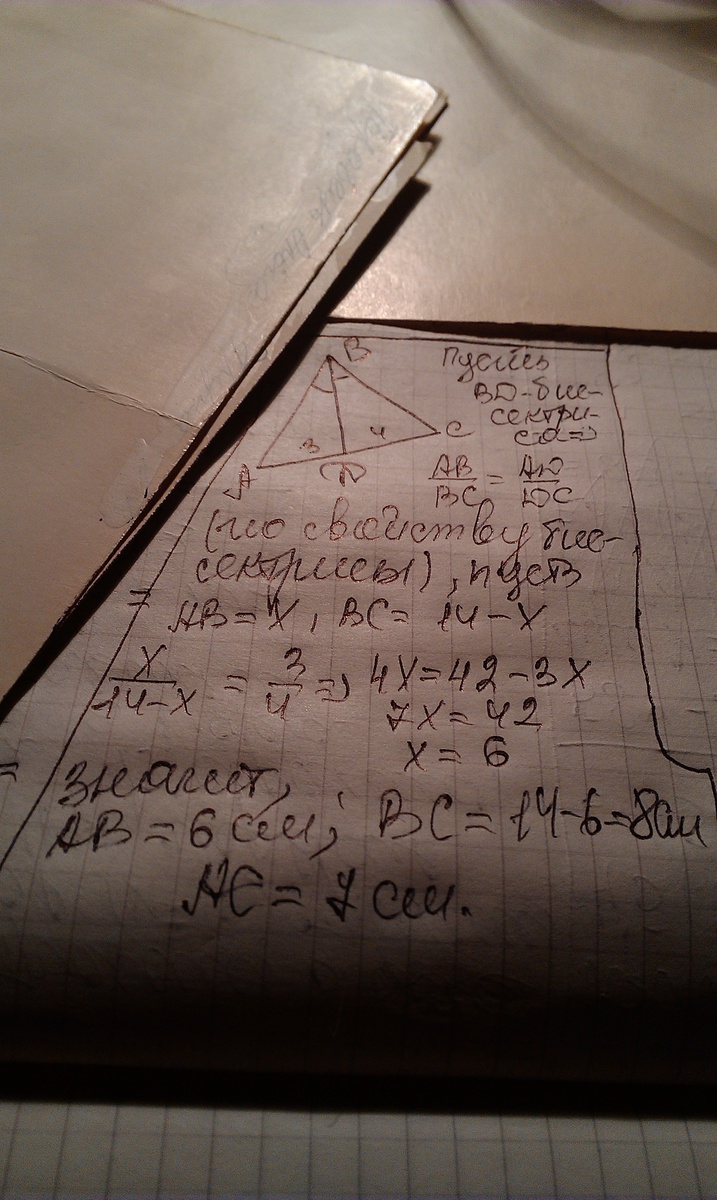 B
3
4
C
A
D
Пусть
BD-бис-
сектри-
са=>
AB/BC = AD/DC
(по свойству бис-
сектрисы), пусть
AB=X, BC= 14-X
X/14-X = 3/4 => 4X=42-3X
7X=42
X=6
значит,
AB=6 см; BC=14-6=8см
AC=7 см.